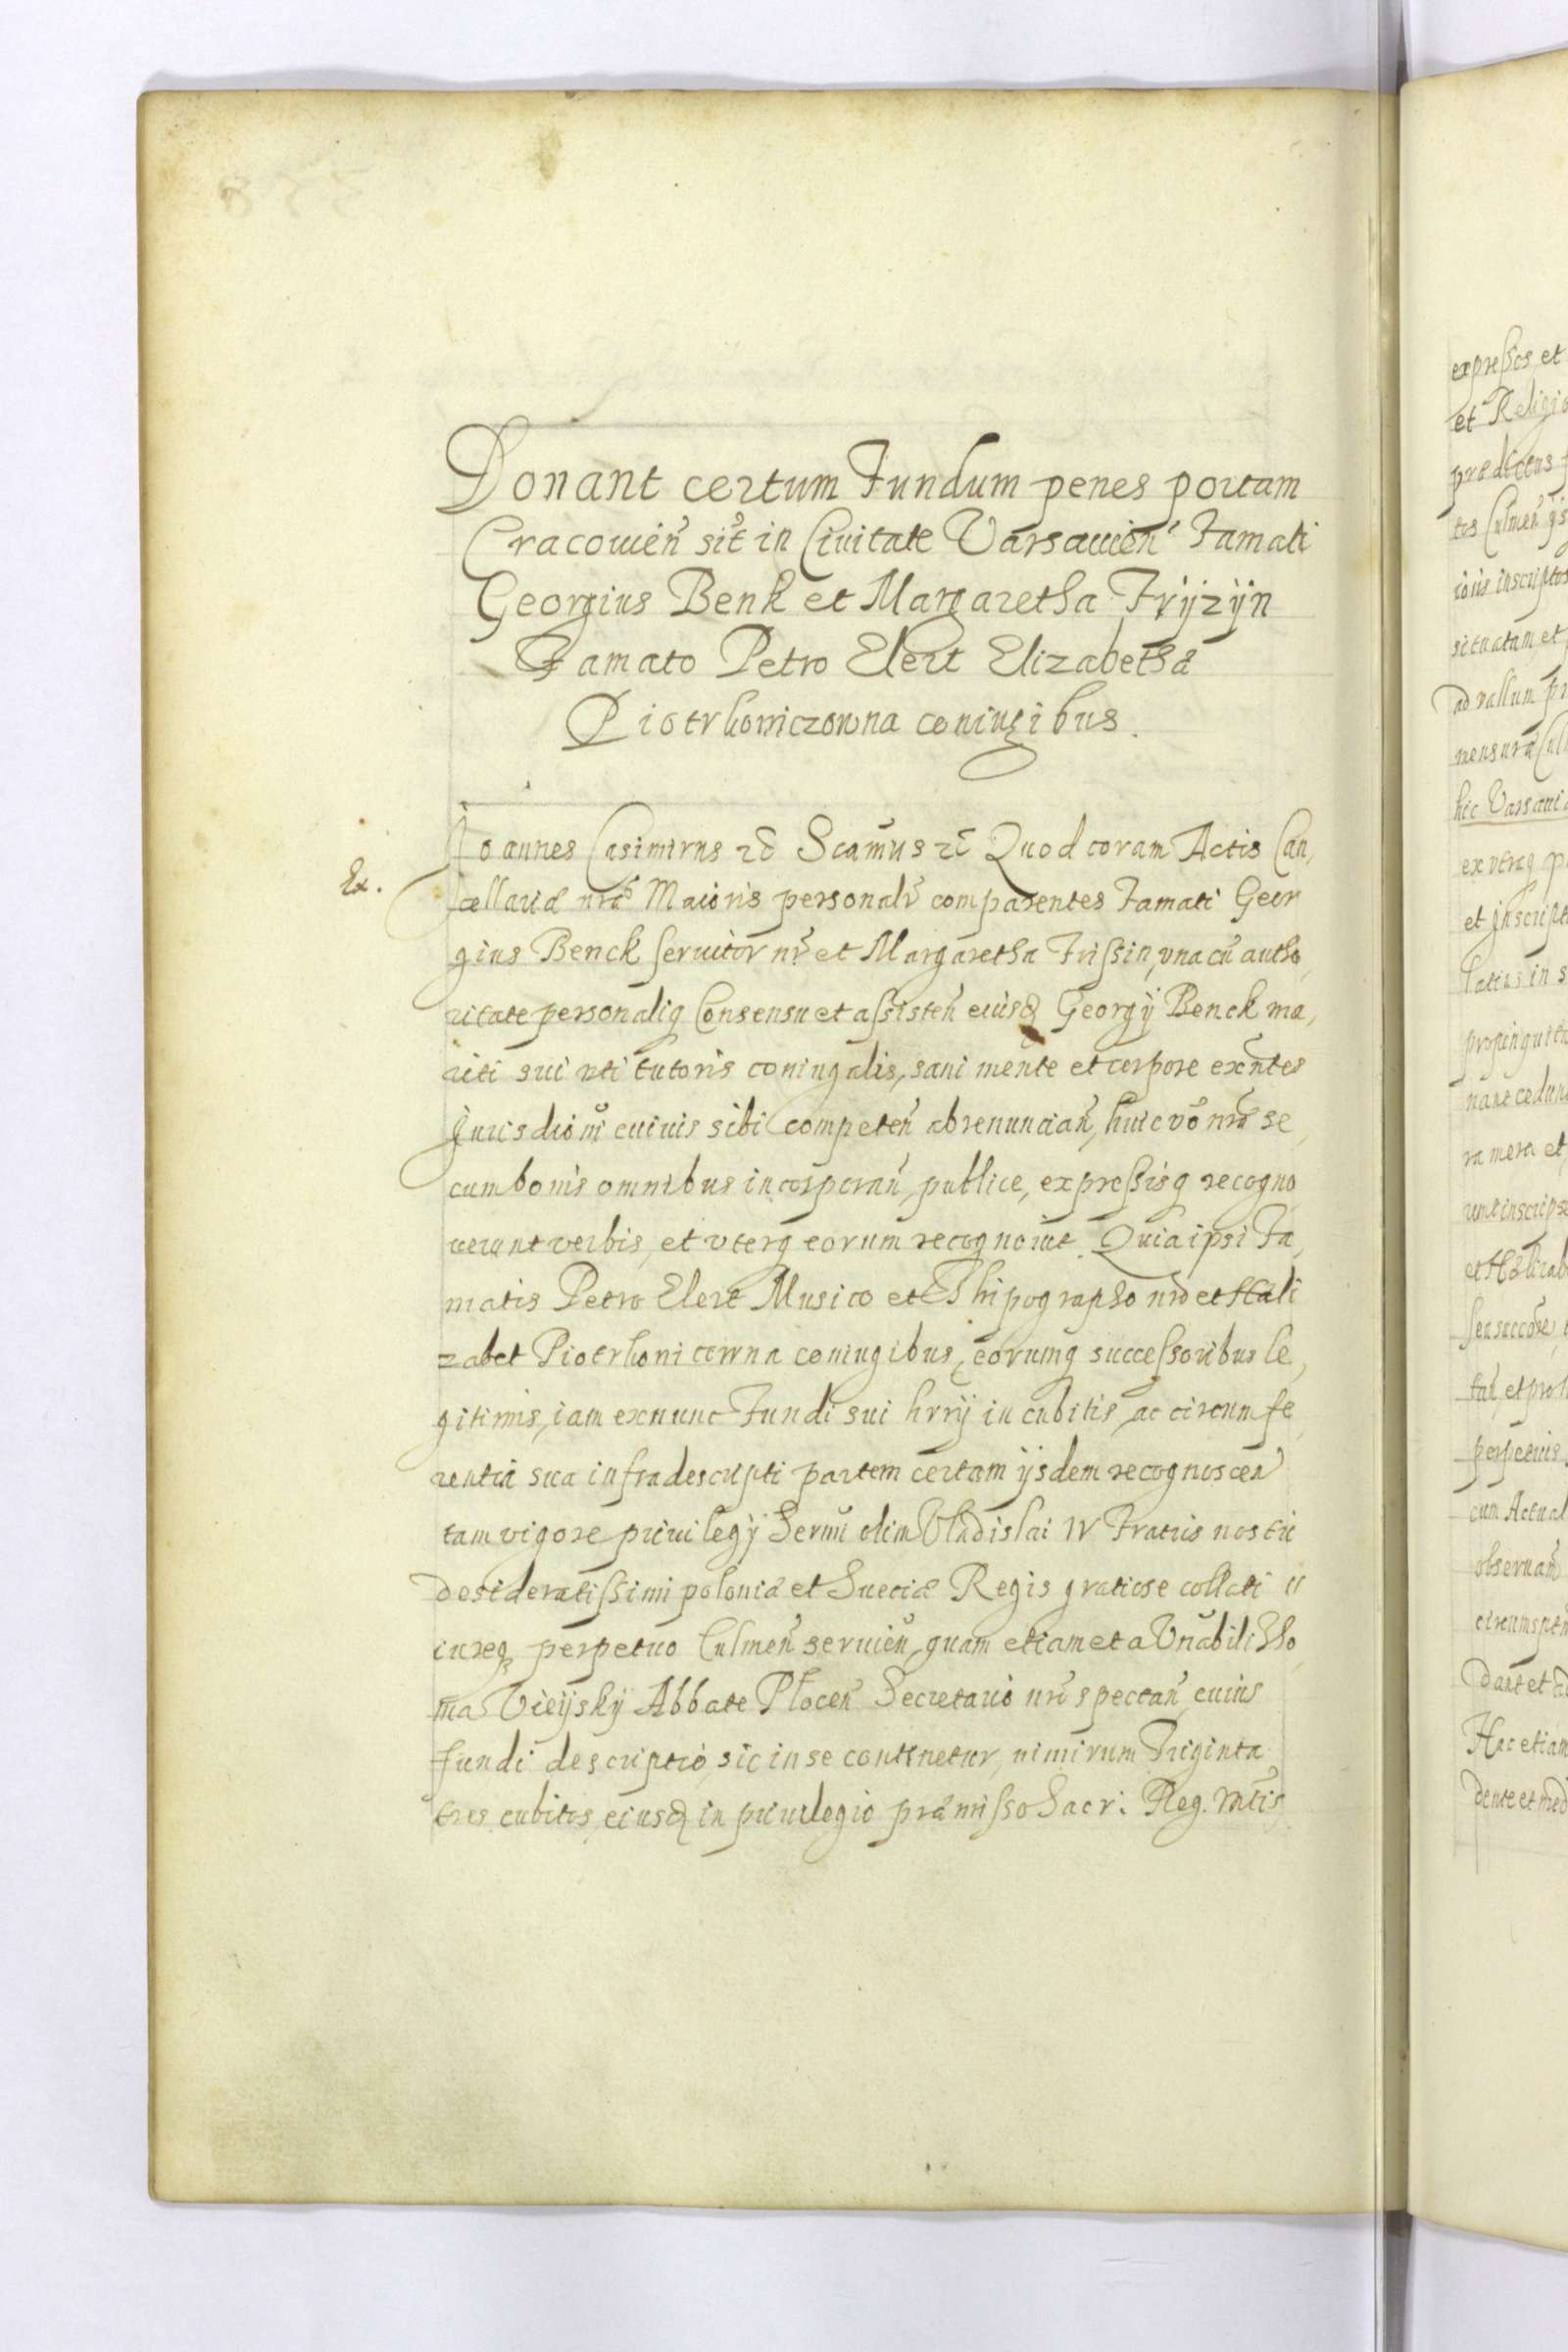 Donant certum Fundum penes portam
Cracouien̄ sit̄ in Ciuitate Varsauien̄ Famati
Georgius Benk et Margaretha Fryzyn
Famato Petro Elert Elizabetha
Piotrkowiczowna coniugibus.
Ioannes Casimirus etc̄ Scamūs etc̄ Quod coram Actis Can,
Ex.
cellariæ nrāe Maioris personalr̄ comparentes Famati Geor
gius Benck seruitor nr̄ et Margaretha Frissin, vna cū autho,
ritate personaliq Consensu et assisten̄ eiusd Georgij Benck ma,
riti sui uti tutoris coniugalis, sani mente et corpore exn̄tes
Jurisdioni cuiuis sibi competen̄ abrenuncian̄, huic vō nrāe se,
cum bonis omnibus incorporan̄, publice, expressisq recogno
uerunt verbis, et vterq eorum recognouit. Quia ipsi Fa,
matis Petro Elert Musico et Thipographo nrō et Hali
zabet Piotrkonicowna coniugibus, eorumq successoribus le,
gitimis, iam ex nunc Fundi sui hrrij in cubitis, ac circumfe,
rentia sua infradescripti partem certam ijsdem recognoscen̄
tam vigore priuilegij Serm̄i olim Vladislai IV Fratris nostri
desideratissimi poloniæ et Sueciæ Regis gratiose collati
iureq perpetuo Culmen̄ seruien̄, quam etiam et a Vnābili Tho,
ma Vieysky Abbate Plocen̄ Secretario nrō spectan̄, cuius
fundi descriptio, sic in se continetur, nimirum Triginta
tres cubitos, eiusd in priuilegio præmisso Sacr: Reg. Mtis
expressos et
et Religio
prædictus
tos Culmen̄
situatam et
ad vallum
mensura
hic Varsaui
ex vtraq
et Inscript
latius in
nant cedun
ra mera et
perpetuis
cum Actual
obseruan̄
Dant et
Hac etiam